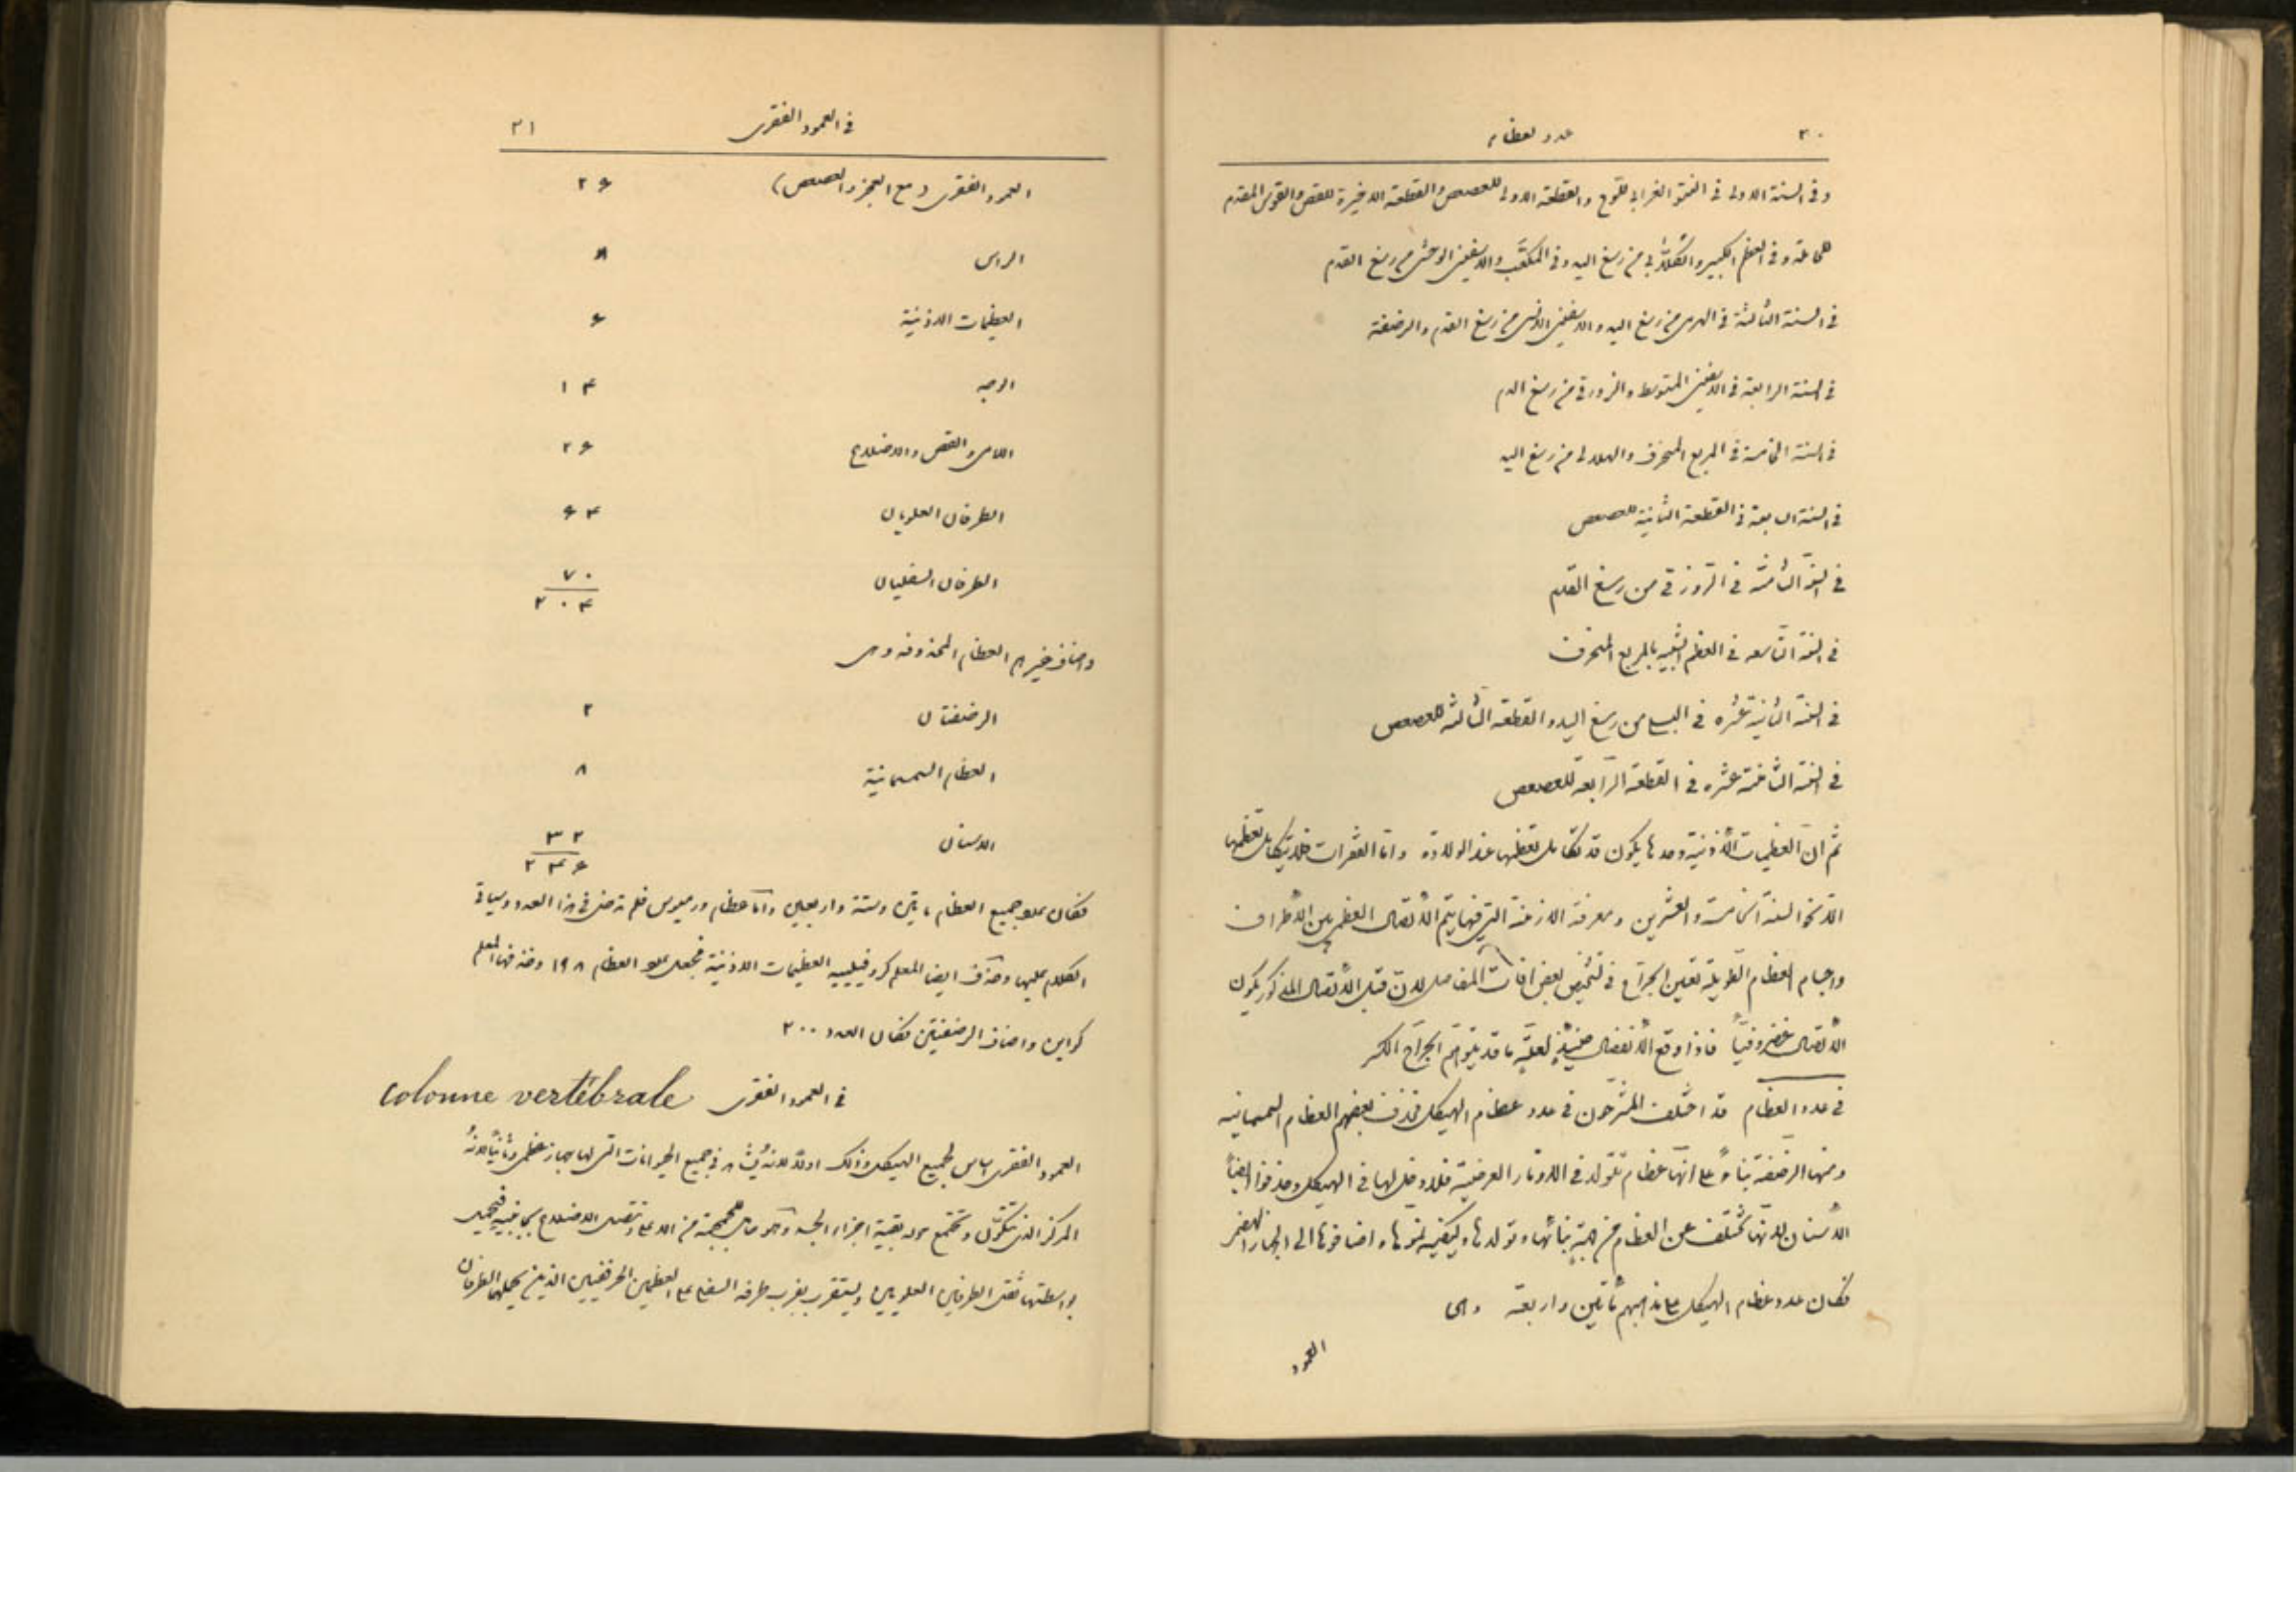 ٣٠
عدد العظام
وفى السنة الاولى فى النتو الغرابى للوح والقطعة الاولى للعصعص والقطعة الاخيرة للقص والقوس المقدم
للحاملة وفى العظم الكبير والكلابى من رسغ اليد وفى المكعب والاسفينى الوحشى من رسغ القدم
فى السنة الثالثة فى الهرمى من رسغ اليد والاسفينى الانسى من رسغ القدم والرضفة
فى السنة الرابعة فى الاسفينى المتوسط والزورقى من رسغ
فى السنة الخامسة فى المربع المنحرف والهلالى من رسغ اليد
فى السنة السابعة فى القطعة الثانية للعصعص
فى السنة الثامنة فى الزورقى من رسغ القدم
فى السنة التاسعة فى العظم الشبيه بالمربع المنحرف
فى السنة الثانية عشره فى البسلى من رسغ اليد والقطعة الثالثة للعصعص
فى السنة الثامنة عشره فى القطعة الرابعة للعصعص
ثم ان العظيمات الأذنية وحدها يكون قد تكامل تعظمها عند الولادة واما الفقرات فلا يتكامل تعظمها
الا نحو السنة الخامسة والعشرين ومعرفة الازمنة التى فيها يتم الاتصال العظمى بين الأطراف
واجسام العظام الطويلة تعين الجراح فى تشخيص بعض افات المفاصل لان قبل الاتصال المذكور يكون
الاتصال غضروفيا فاذا وقع الانفصال حينئذ لعلة ما قد يتوهم الجراح الكسر
فى عدد العظام قد اختلف المشرحون فى عدد عظام الهيكل فحذف بعضهم العظام السمسمانيه
ومنها الرضفة بناءً على انها عظام تتولد فى الاوتار العرضية فلا دخل لها فى الهيكل وحذفوا ايضاً
الأسنان لانها تختلف عن العظام من جهة بنائها وتولدها وكيفية نموها واضافوها الى الجهاز الهضمى
فكان عدد عظام الهيكل على مذهبهم مأتين واربعة وهى
العمود
فى العمود الفقرى
٣١
العمود الفقرى (مع العجز والعصعص) ٢٦
الراس ٨
العظيمات الاذنية ٦
الوجه ١٤
اللامى والقص والاضلاع ٢٦
الطرفان العلويان ٦٤
الطرفان السفليان ٧٠
٢٠٤
واضاف غيرهم العظام المحذوفة وهى
الرضفتان ٢
العظام السمسمانية ٨
الاسنان ٣٢
٢٤٦
فكان عدد جميع العظام مايتين وستة واربعين واما عظام ورميوس فلم تدخل فى هذا العدد وسياتى
الكلام عليها وحذف ايضا المعلم كروفيلييه العظيمات الاذنية فجعل عدد العظام ١٩٨ وحذفها المعلم
واضاف الرضفتين فكان العدد ٢٠٠
فى العمود الفقرى colonne vertébrale
العمود الفقرى اساس لجميع الهيكل وذلك اولا لانه يُشاهد فى جميع الحيوانات التى لها جهاز عظمى وثانيا لانه
المركز الذى تتكون وتجتمع حوله بقية اجزاء الجسد وهو حامل للجمجمة من الاعلى وتتصل الاضلاع بجانبيه فيحمل
بواسطتها ثقل الطرفين العلويين ويستقر بقرب طرفه السفلى على العظمين الحرقفيين الذين يحملهما الطرفان